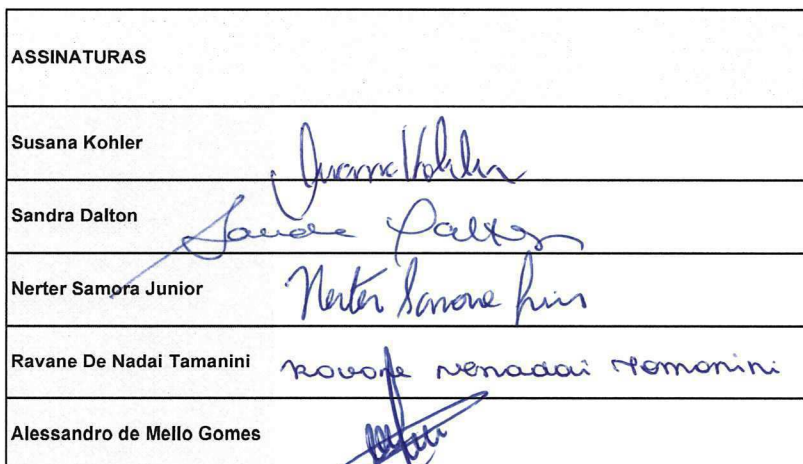 ASSINATURAS
Susana Kohler Susana Kohler
Sandra Dalton Sandra Dalton
Nerter Samora Junior Nerter Samora Junior
Ravane De Nadai Tamanini Ravane Denadai Tamanini
Alessandro de Mello Gomes